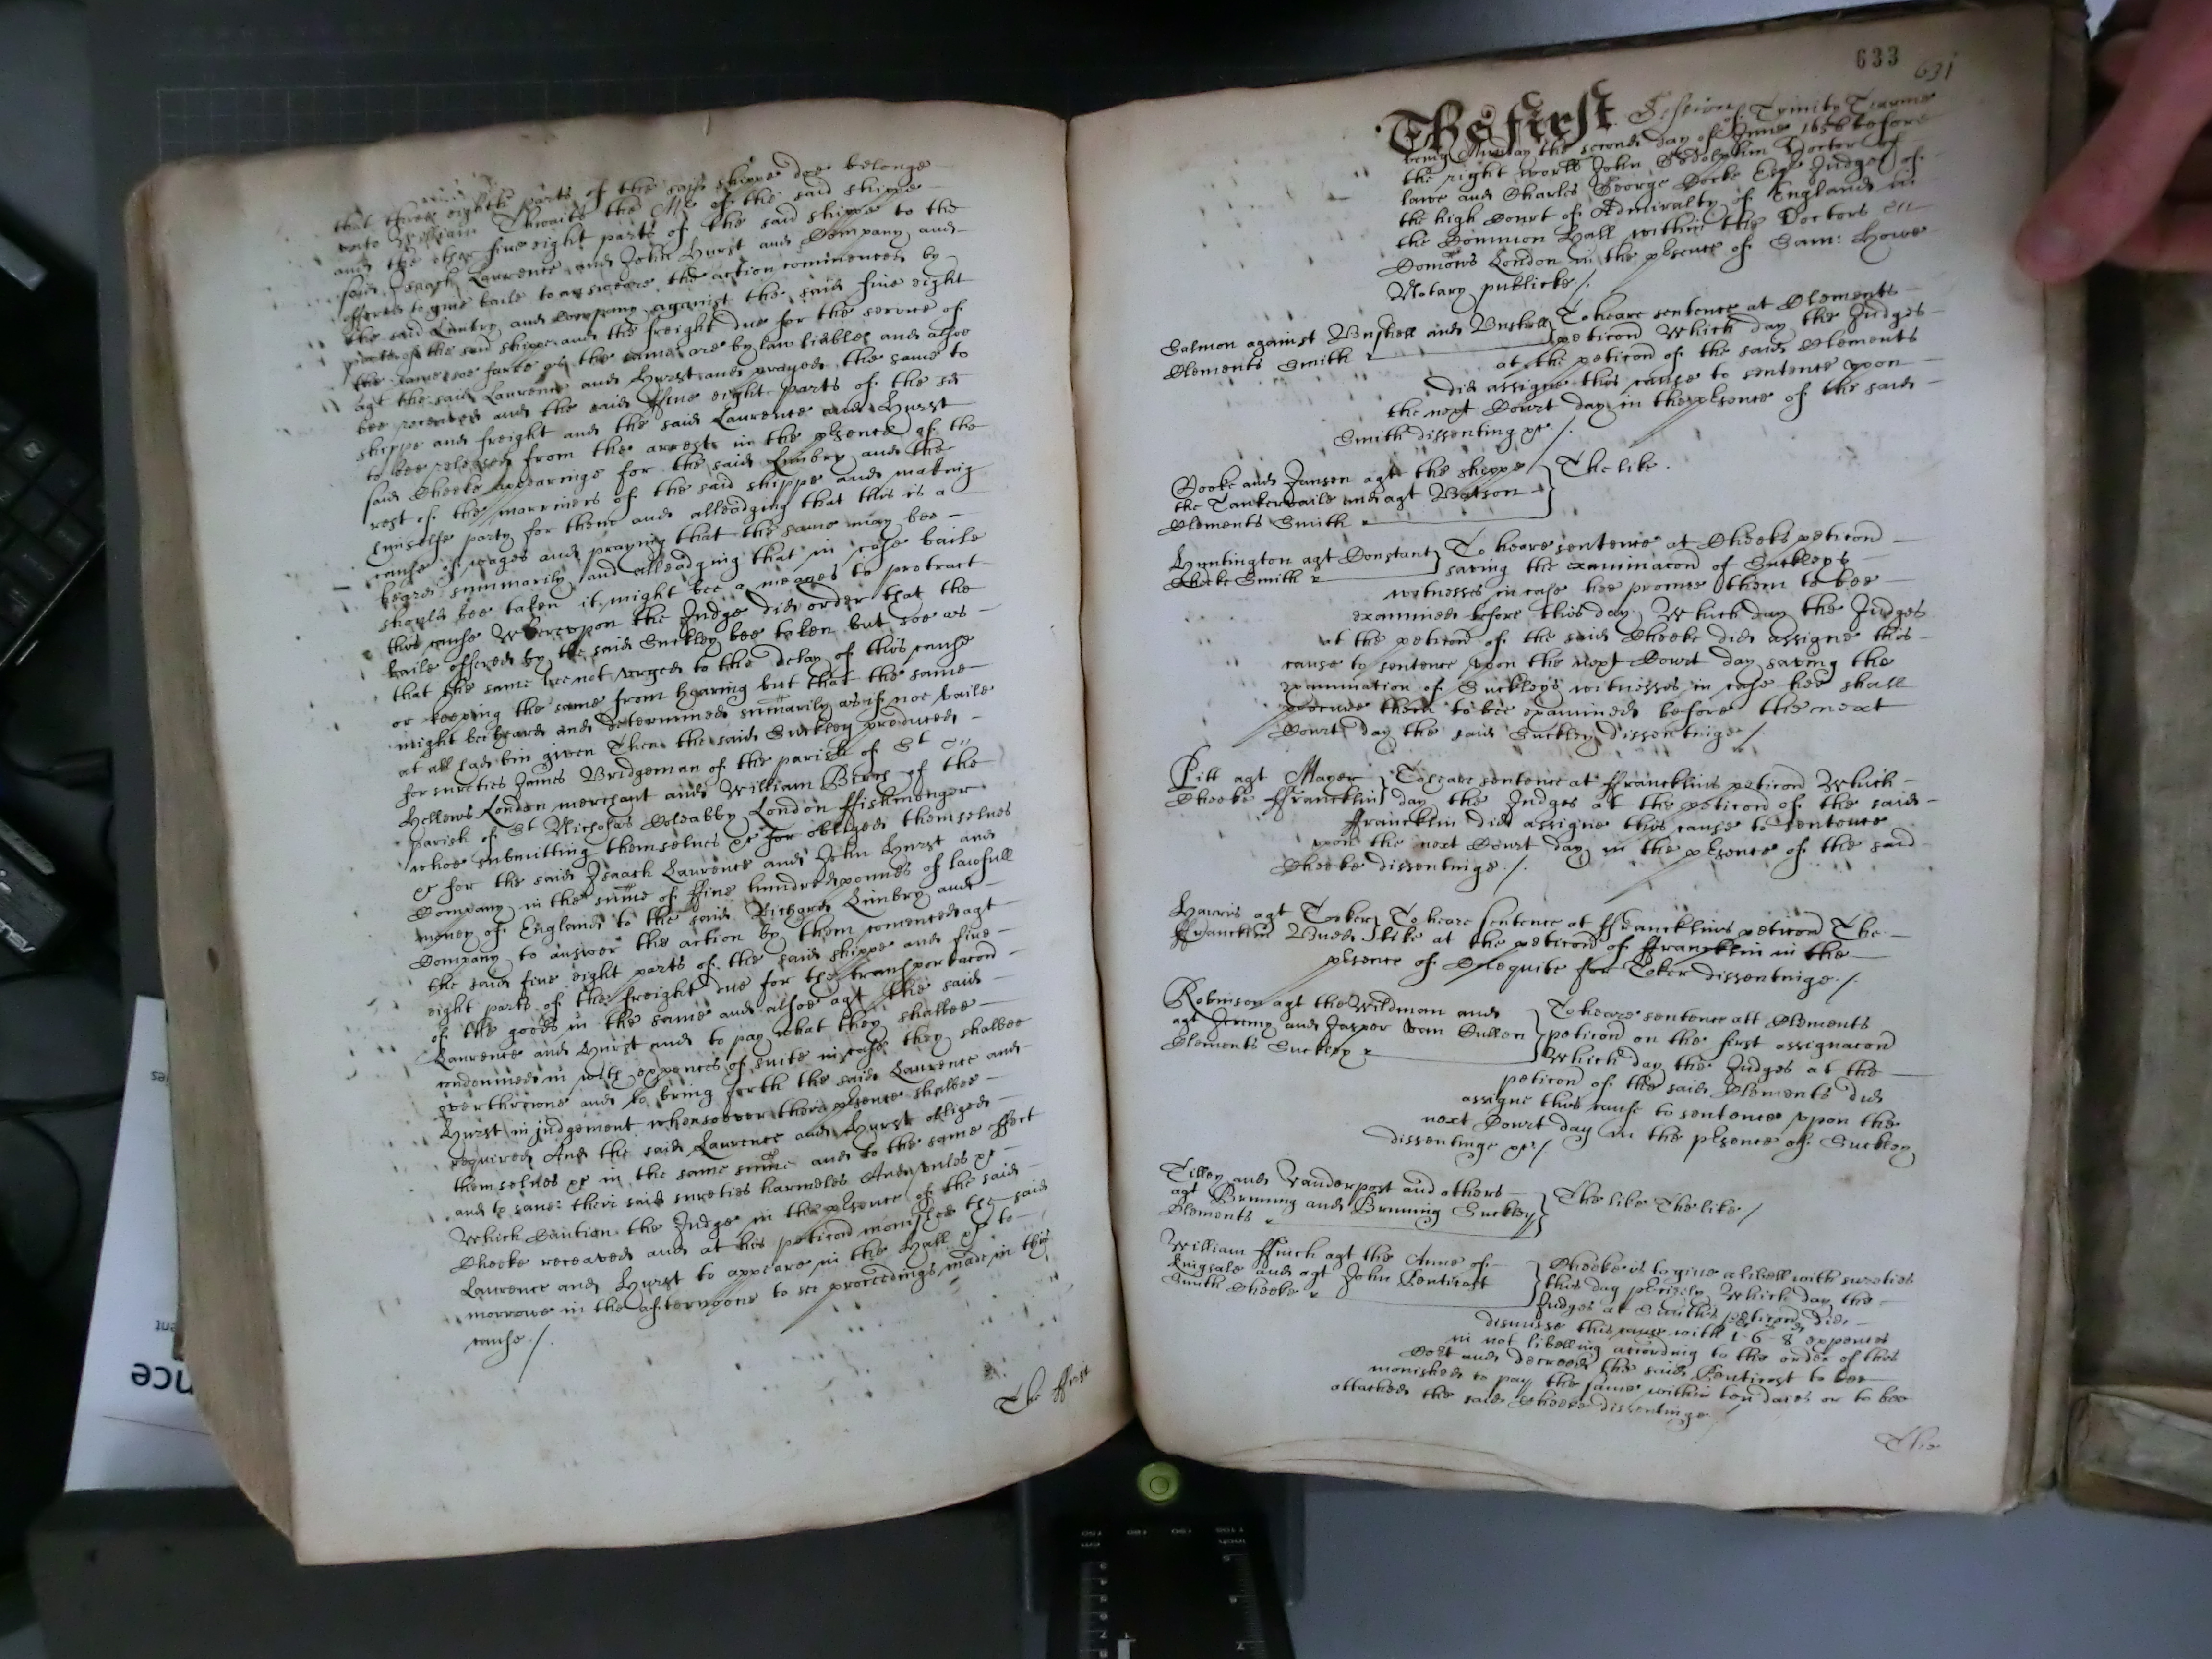 that three eighth parts of the said shippe doe belonge
unto William Thwaits the Mr of the said shippe
and the other five eight parts of the said shippe to the
said Isaack Laurence and John Hurst and Company and
offered to give baile to answeare the action commenced by
the said Limbry and Company against the said five eight
parts of the said shippe and the freight due for the service of
the same soe farre as the same are by law liable and alsoe
agt the said Laurence and Hurst and prayed the same to
bee received and the said ffive eight parts of the sd
shippe and freight and the said Laurence and Hurst
to bee released from the arrests in the pñsence of the
said Cheeke appearinge for the said Limbry and the
rest of the marriners of the said shippe and making
himselfe party for them and alleadging that this is a
cause of wages and praying that the same may bee
heard summarily and alleadging that in case baile
should bee taken it might bee a meanes to protract
this cause Whereupon the Judge did order that the
baile offered by the said Suckley bee taken but soe as
that the same bee not urged to the delay of this cause
or keeping the same from hearing but that the same
might bee heard and determined sum̃arily as if noe baile
at all had bin given Then the said Suckley produced
for sureties James Bridgeman of the parish of St
Hellens London merchant and William of the
parish of St Nicholas Coleabby London ffishmonger
whoe submitting themselves &c for obliged themselves
&c for the said Isaack Laurence and John Hurst and
Company in the sum̃e of ffive hundred pounds of lawfull
money of England to the said Richard Limbry and
Company to answer the action by them com̃enced agt
the said five eight parts of the said shippe and five
eight parts of the freight due for the transportacon̄
of the goods in the same and alsoe agt the said
Laurence and Hurst and to pay what they shalbee
condemned in with expences of suite in case they shalbee
overthrowne and to bring forth the said Laurence and
Hurst in judgement whensoever their pñsence shalbee
required And the said Laurence and Hurst obliged
themselves &c in the same sum̃e and to the same effect
and to save their said sureties harmeles And unles &c
Which Caution the Judge in the pñsence of the said
Cheeke receaved and at his peticon̄ monished the said
Laurence and Hurst to appeare in the Hall &c to
morrowe in the afternoone to see proceedings made in this
cause /.
The ffirst
633 631
The first Session of Trinity Tearme
being Munday the second day of June 1656 before
the right worll John Godolphin Doctor of
lawe and Charles George Cocke Esqr Judges of
the high Court of Admiralty of England in
the Common Hall within the Doctors
Com̃ons London in the pñsence of Sam: Howe
Notary publicke /.
Salmon against Bushell and Bushell
Clements Smith
To heare sentence at Clements
peticon̄ Which day the Judges
at the peticon̄ of the said Clements
did assigne this cause to sentence upon
the next Court day in the pñsence of the said
Smith dissenting &c /.
Cooke and Jansen agt the shippe
the Tankervaile and agt Batson
Clements Smith
The like.
Huntington agt Constant
Cheeke Smith
To heare sentence at Cheekes peticon̄
saving the examinacon̄ of Suckleys
witnesses in case hee produce them to bee
examined before this day Which day the Judges
at the peticon̄ of the said Cheeke did assigne this
cause to sentence upon the next Court day saving the
examination of Suckleys witnesses in case hee shall
produce them to bee examined before the next
Court day the said Suckley dissentinge /.
Pitt agt Mayer
Cheeke ffrancklin
To heare sentence at ffrancklins peticon̄ Which
day the Judges at the peticon̄ of the said
ffrancklin did assigne this cause to sentence
upon the next Court day in the pñsence of the said
Cheeke dissentinge /.
Harris agt Tooker
ffrancklin Budd
To heare sentence at ffrancklins peticon̄ The
like at the peticon̄ of ffrancklin in the
pñsence of for Toker dissentinge /.
Robinson agt the Wildman and
agt Jeremy and Jasper van Cullen
Clements Suckley
To heare sentence att Clements
peticon̄ on the first assignacon̄
Which day the Judges at the
peticon̄ of the said Clements did
assigne this cause to sentence upon the
next Court day in the pñsence of Suckley
dissentinge &c /
Tilley and Vanderpost and others
agt Bruning and Bruning Suckley
Clements
The like The like /
William ffinch agt the Anne of
Kingsale and agt John Penticost
Smith Cheeke
Cheeke is to give a libell with sureties
this day pr̃cisely Which day the
Judges at Smiths peticon̄ did
dismisse this cause with 1-6-8 expences
in not libelling according to the order of this
Cort and decreed the said Penticost to bee
monished to pay the same within ten daies or to bee
attached the said Cheeke dissentinge
The